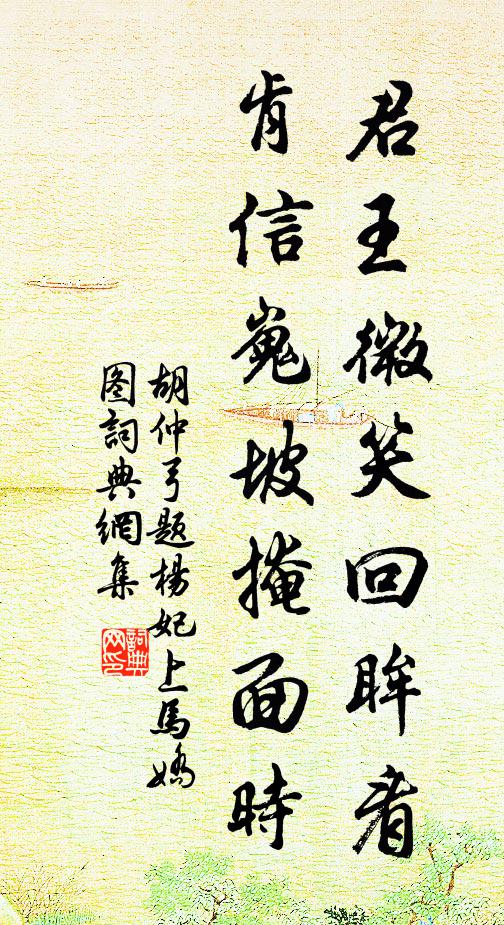 君王微笑回眸看
肯信嵬坡掩面時
胡仲弓题楊妃上馬嬌
图詞典網集
詞典网印